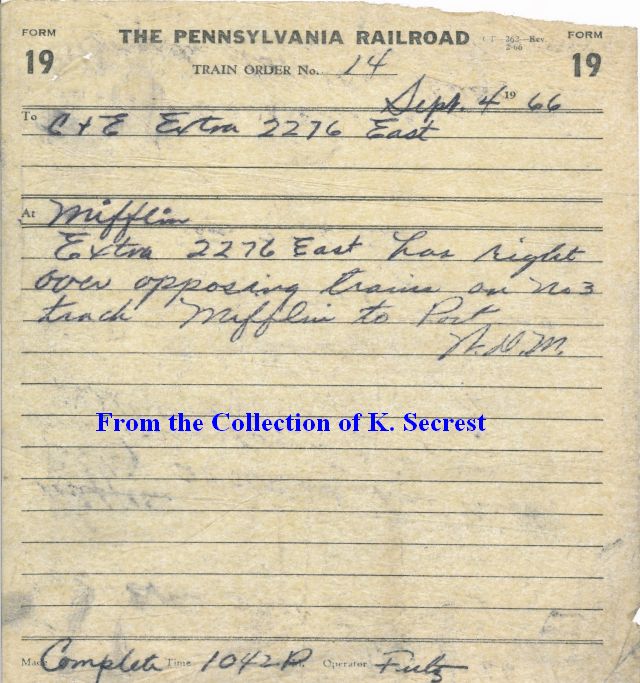 FORM 19
THE PENNSYLVANIA RAILROAD
CT 363—Rev. 2-66
FORM 19
TRAIN ORDER No. 14
Sept. 4 19 66
To C+E Extra 2276 East
At Mifflin
Extra 2276 East has right
over opposing trains on No 3
track Mifflin to Port
From the Collection of K. Secrest
Made Complete Time 1042 P M. Operator